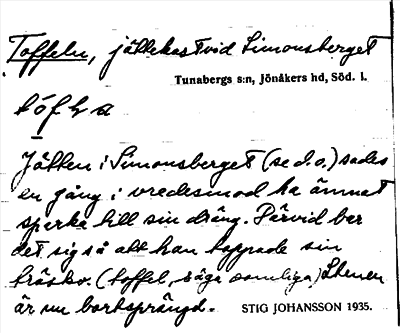 Toffeln, jättekast vid Simonsberget
Tunabergs s:n, Jönåkers hd, Söd. l.
Jätten i Simonsberget (se d. o.) sades
en gång i vredesmod ha ämnat
sparka till sin dräng. Därvid bar
det sig så att han tappade sin
träsko. (toffel, säga somliga) Stenen
är nu bortsprängd.
STIG JOHANSSON 1935.